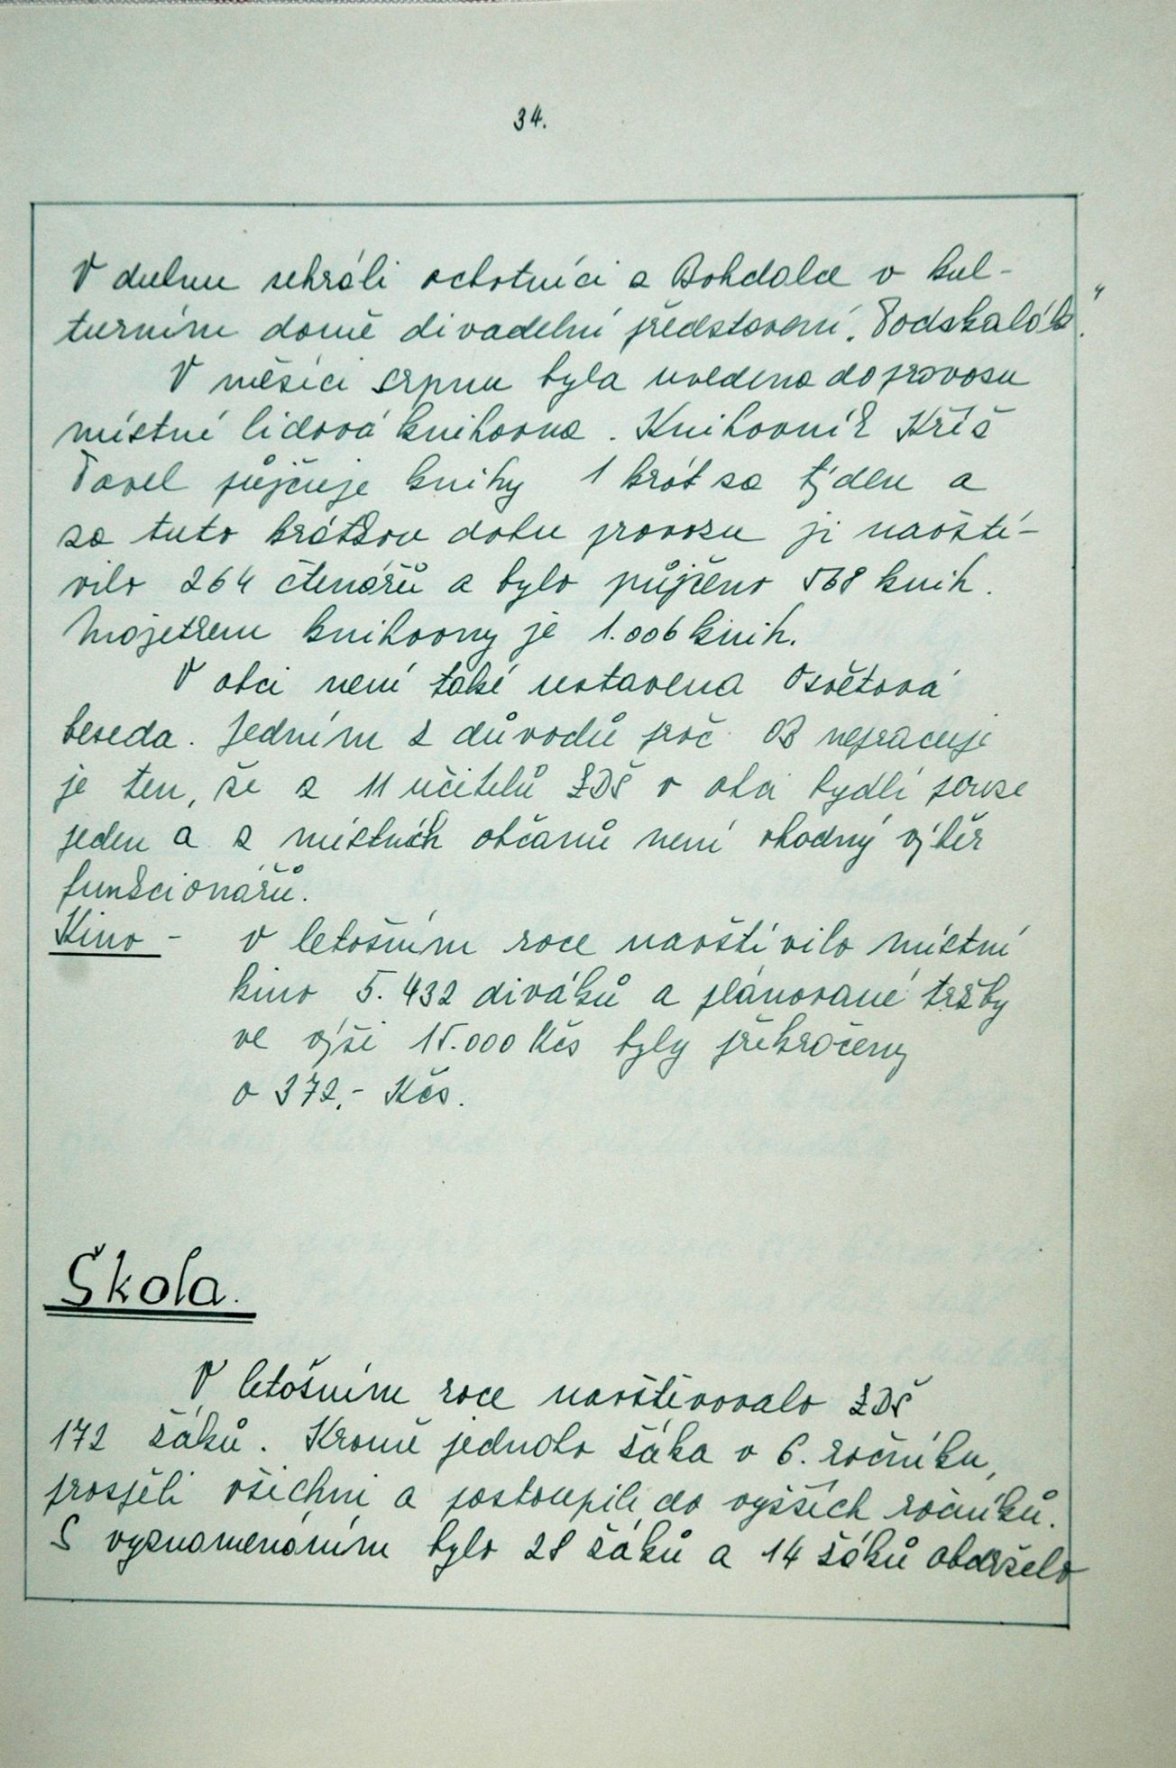 34.
V dubnu sehráli ochotníci z Bohdalce v kul-
turním domě divadelní představení „Podskalák“.
V měsíci srpnu byla uvedena do provozu
místní lidová knihovna. Knihovník Kříž
Pavel půjčuje knihy 1 krát za týden a
za tuto krátkou dobu provozu ji navští-
vilo 264 čtenářů a bylo půjčeno 568 knih.
Majetkem knihovny je 1.006 knih.
V obci není také ustavena Osvětová
beseda. Jedním z důvodů proč OB nepracuje
je ten, že z 11 učitelů ZDŠ v obci bydlí pouze
jeden a z místních občanů není vhodný výběr
funkcionářů.
Kino - V letošním roce navštívilo místní
kino 5.432 diváků a plánované tržby
ve výši 15.000 Kčs byly překročeny
o 372,- Kčs.
Škola.
V letošním roce navštěvovalo ZDŠ
172 žáků. Kromě jednoho žáka v 6. ročníku,
prospěli všichni a postoupili do vyšších ročníků.
S vyznamenáním bylo 28 žáků a 14 žáků obdrželo